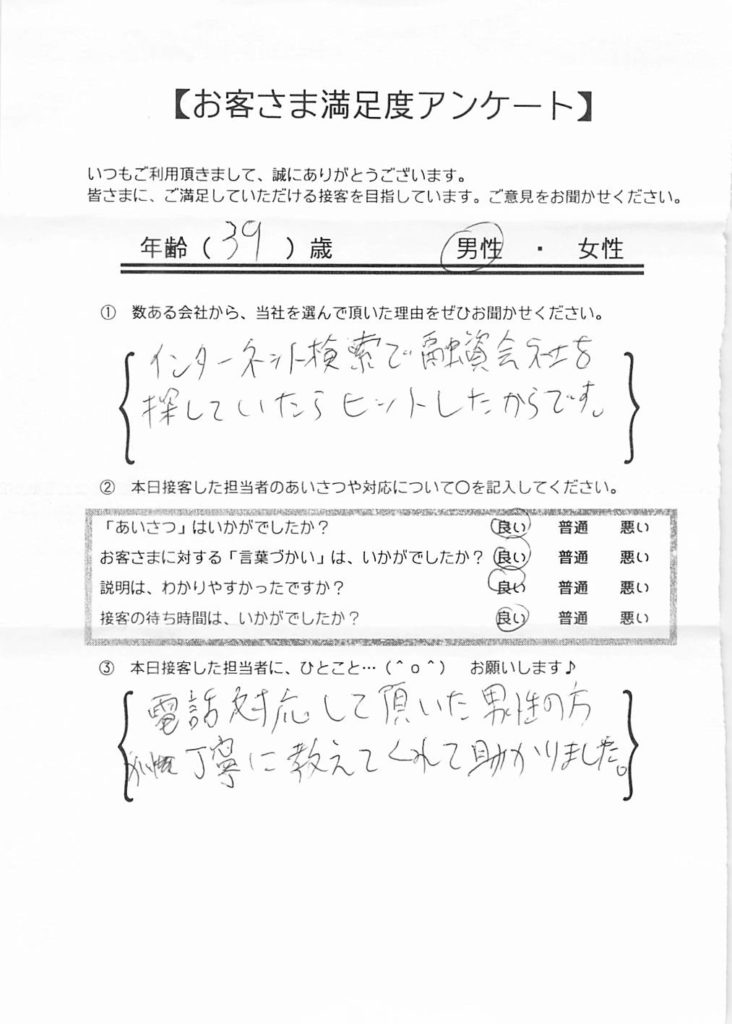 【お客さま満足度アンケート】
いつもご利用頂きまして、誠にありがとうございます。
皆さまに、ご満足していただける接客を目指しています。ご意見をお聞かせください。
年齢（39）歳　男性・女性
① 数ある会社から、当社を選んで頂いた理由をぜひお聞かせください。
インターネット検索で融資会社を
探していたらヒットしたからです。
② 本日接客した担当者のあいさつや対応について〇を記入してください。
「あいさつ」はいかがでしたか？　良い　普通　悪い
お客さまに対する「言葉づかい」は、いかがでしたか？　良い　普通　悪い
説明は、わかりやすかったですか？　良い　普通　悪い
接客の待ち時間は、いかがでしたか？　良い　普通　悪い
③ 本日接客した担当者に、ひとこと…（＾ｏ＾）　お願いします♪
電話対応して頂いた男性の方
丁寧に教えてくれて助かりました。